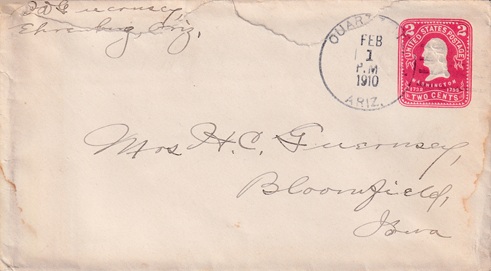 Guernsey,
Ehrenberg, Ariz.
QUARTZ
FEB
1
P.M
1910
ARIZ.
2 2
UNITED STATES POSTAGE
WASHINGTON
TWO CENTS
Mrs H.C. Guernsey,
Bloomfield,
Iowa